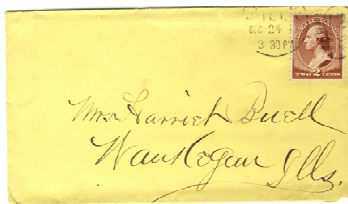 DEC 24
3 30 PM
TWO 2 CENTS
Mrs Harriet Buell
Waukegan
Ills.